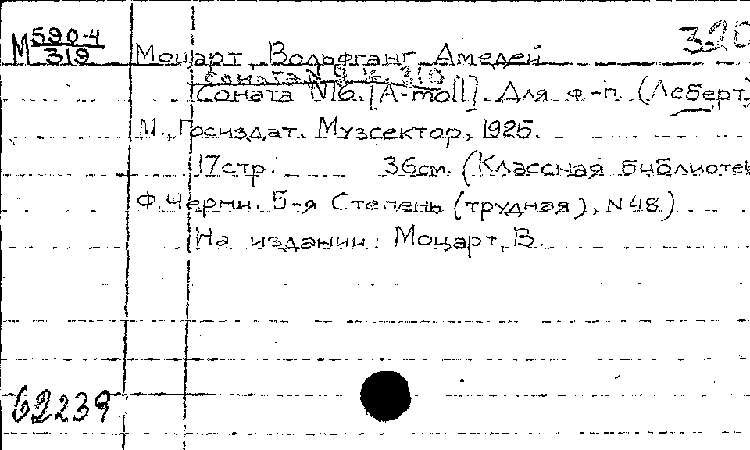 М 590-4 320
319
Моцарт, Вольфганг Амедей
Соната N 9. К. 310
Соната N16. [A-moll]. Для ф-п. (Леберт,
М., Госиздат. Музсектор, 1925.
17стр. 36см. (Классная библиотек
Ф. Черни. 5-я Степень (трудная), N 48)
На издании: Моцарт, В.
62239